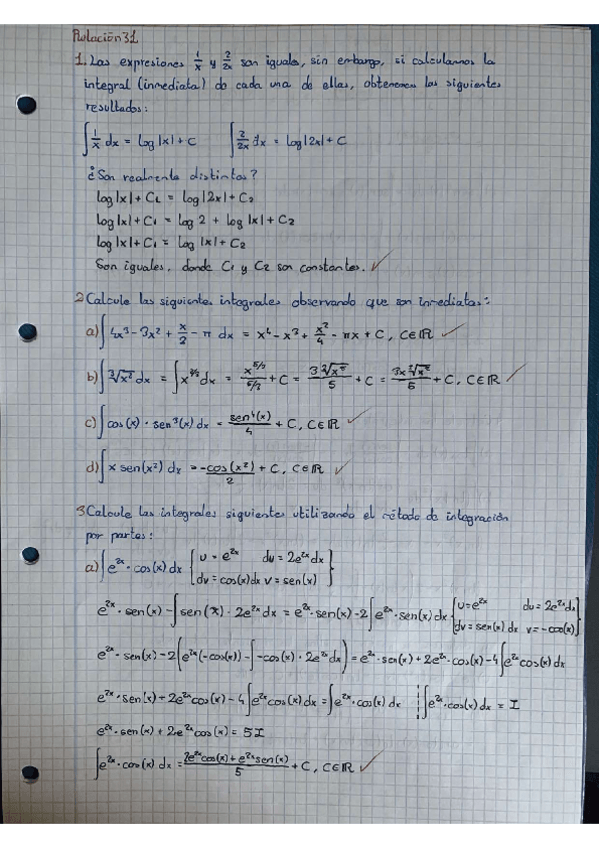 Relación 31
1. Las expresiones 1/x y 2/2x son iguales, sin embargo, si calculamos la
integral (inmediata) de cada una de ellas, obtenemos los siguientes
resultados:
∫ 1/x dx = log|x| + C   ∫ 2/2x dx = log|2x| + C
¿Son realmente distintas?
log|x| + C₁ = log|2x| + C₂
log|x| + C₁ = log 2 + log|x| + C₂
log|x| + C₁ = log|x| + C₂
Son iguales, donde C₁ y C₂ son constantes. ✓
2 Calcule las siguientes integrales observando que son inmediatas:
a) ∫ 4x³ - 3x² + x/2 - π dx = x⁴ - x³ + x²/4 - πx + C, C∈ℝ ✓
b) ∫ ∛x² dx = ∫ x^(2/3) dx = x^(5/3)/(5/3) + C = 3∛x⁵/5 + C = 3x∛x²/5 + C, C∈ℝ ✓
c) ∫ cos(x) · sen³(x) dx = sen⁴(x)/4 + C, C∈ℝ ✓
d) ∫ x sen(x²) dx = -cos(x²)/2 + C, C∈ℝ ✓
3 Calcule las integrales siguientes utilizando el método de integración
por partes:
a) ∫ e^(2x) · cos(x) dx { u = e^(2x)   du = 2e^(2x) dx
dv = cos(x) dx   v = sen(x) }
e^(2x) · sen(x) - ∫ sen(x) · 2e^(2x) dx = e^(2x) · sen(x) - 2 ∫ e^(2x) · sen(x) dx { u = e^(2x)   du = 2e^(2x) dx
dv = sen(x) dx   v = -cos(x) }
e^(2x) · sen(x) - 2(e^(2x)(-cos(x)) - ∫ -cos(x) · 2e^(2x) dx) = e^(2x) · sen(x) + 2e^(2x) · cos(x) - 4 ∫ e^(2x) cos(x) dx
e^(2x) · sen(x) + 2e^(2x) cos(x) - 4 ∫ e^(2x) cos(x) dx = ∫ e^(2x) · cos(x) dx   ∫ e^(2x) · cos(x) dx = I
e^(2x) · sen(x) + 2e^(2x) cos(x) = 5I
∫ e^(2x) · cos(x) dx = (2e^(2x) cos(x) + e^(2x) sen(x))/5 + C, C∈ℝ ✓